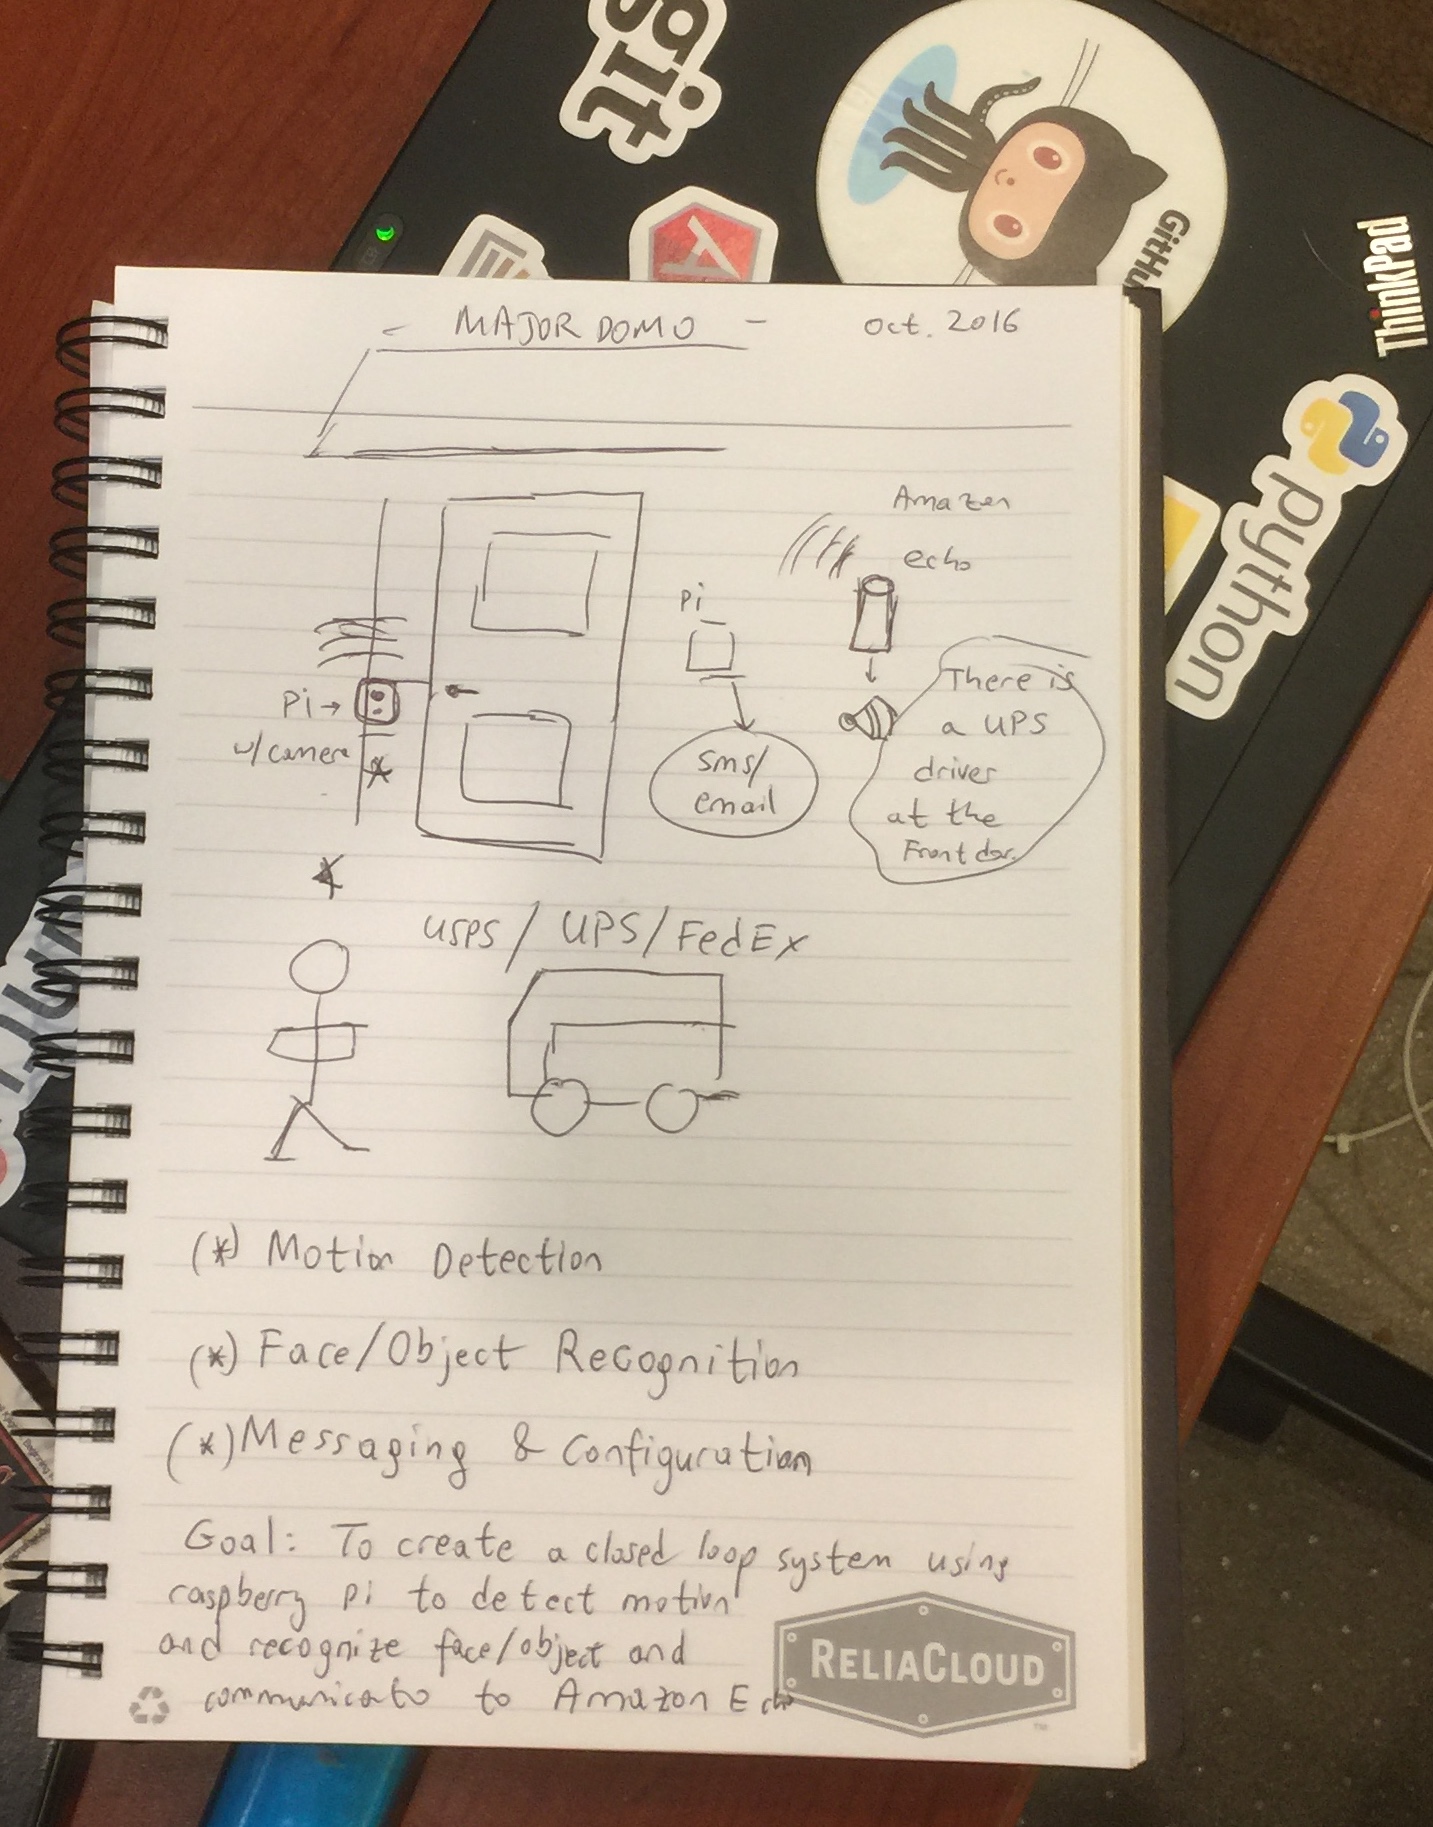 git
GitHub
ThinkPad
python
- MAJOR DOMO -
oct. 2016
Amazon
echo
Pi
Pi →
w/camera
sms/
email
There is
a UPS
driver
at the
Front dor.
USPS / UPS/FedEx
(*) Motion Detection
(*) Face/Object Recognition
(*) Messaging & Configuration
Goal: To create a closed loop system using
raspberry pi to detect motion
and recognize face/object and
communicate to Amazon Echo
RELIACLOUD
TM